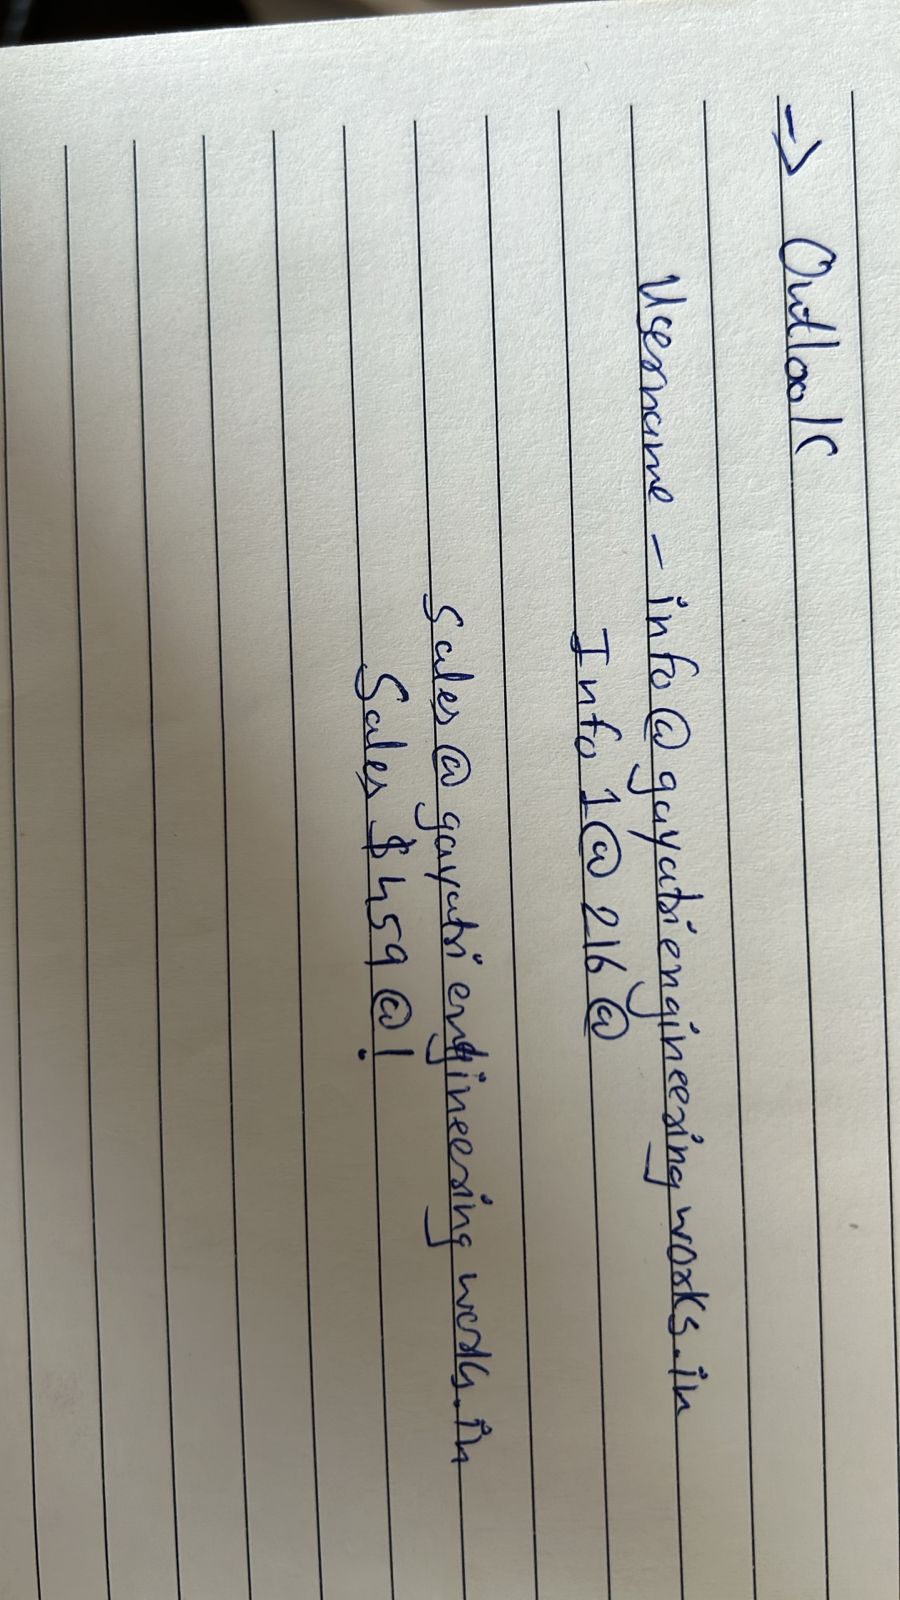 → Outlook
Username - info@gayatriengineeringworks.in
Info1@216@
Sales@gayatriengineeringworks.in
Sales$459@!